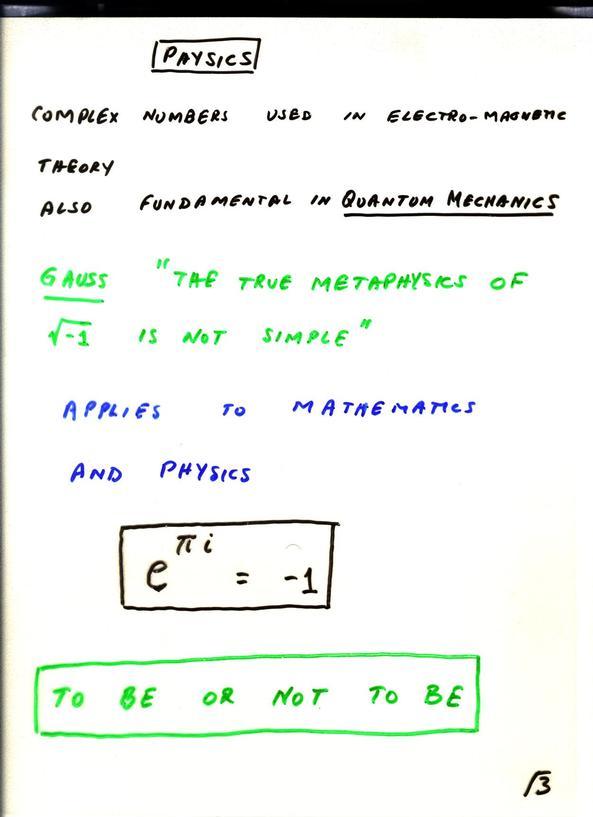 PHYSICS
COMPLEX NUMBERS USED IN ELECTRO-MAGNETIC
THEORY
ALSO FUNDAMENTAL IN QUANTUM MECHANICS
GAUSS "THE TRUE METAPHYSICS OF
√-1 IS NOT SIMPLE"
APPLIES TO MATHEMATICS
AND PHYSICS
e^πi = -1
TO BE OR NOT TO BE
√3